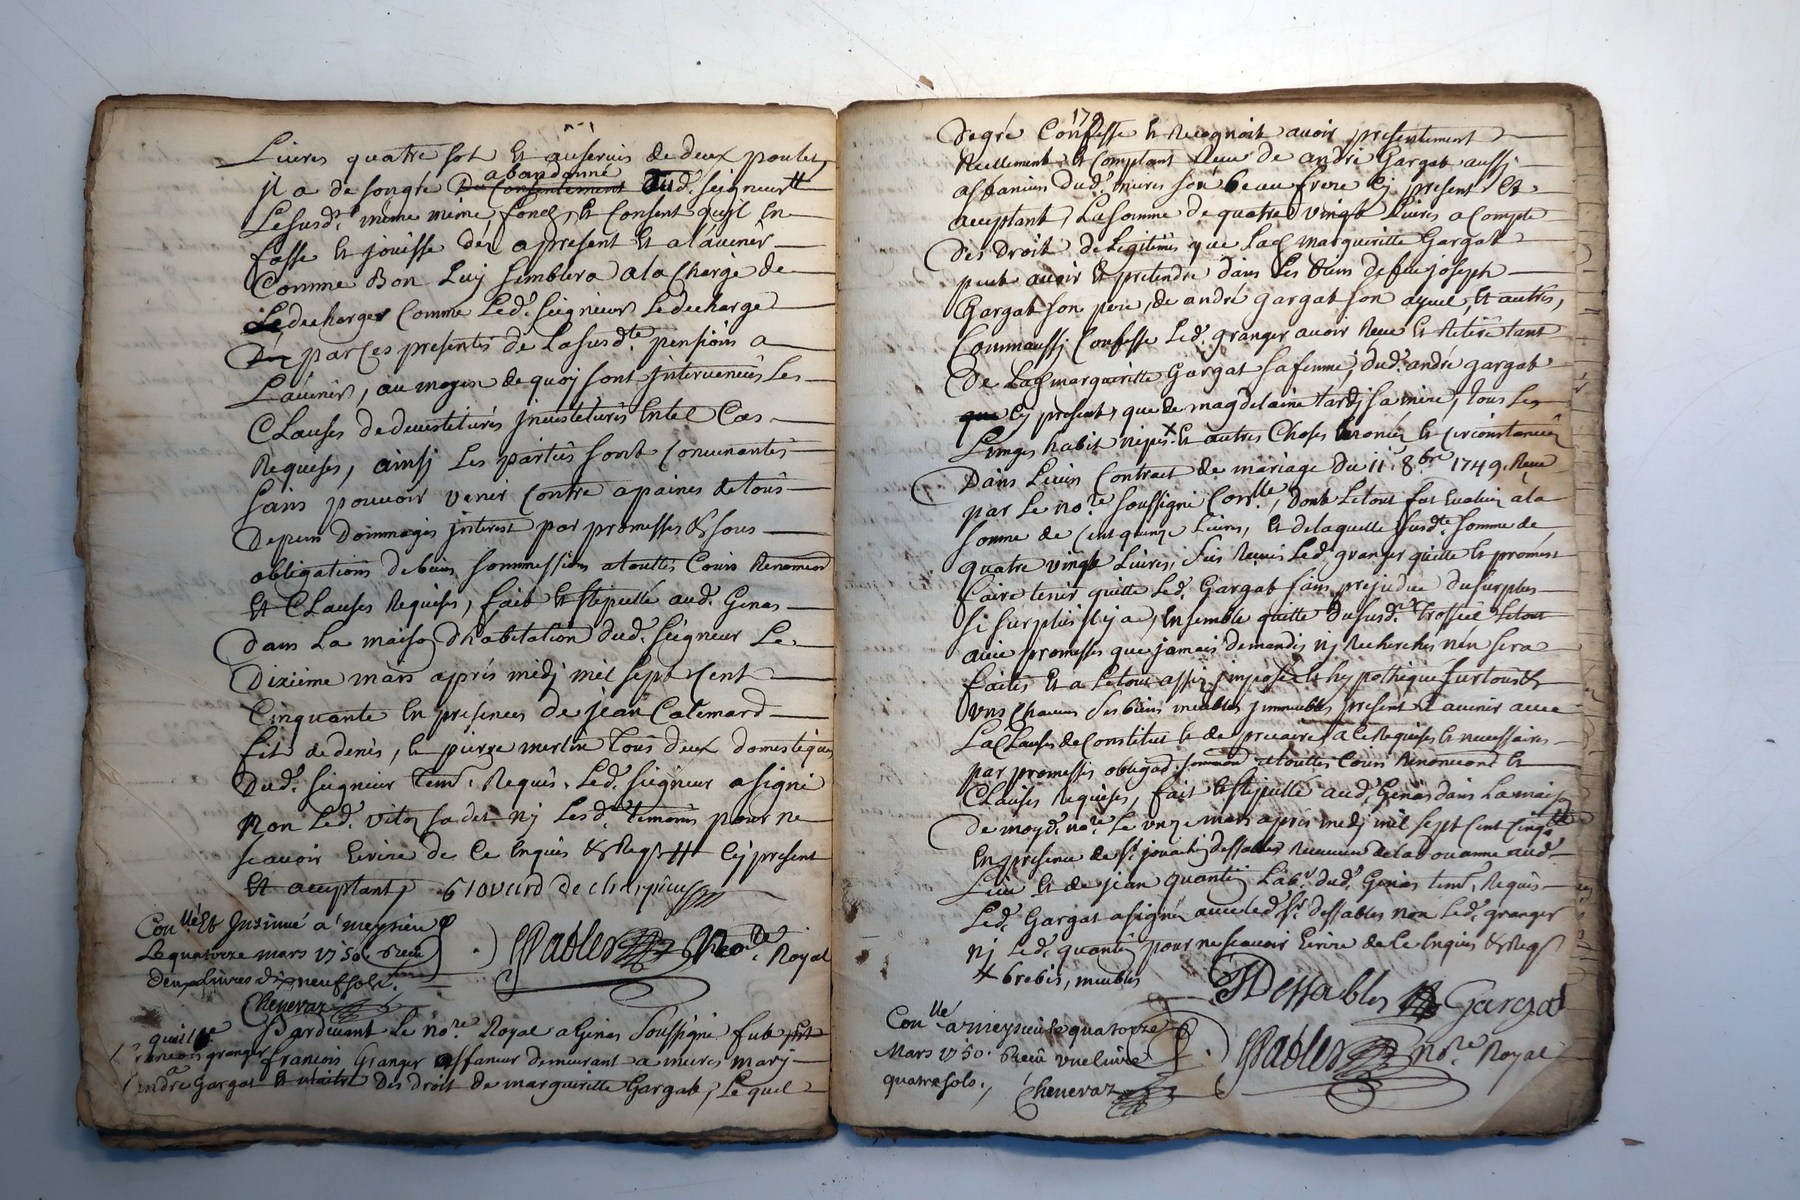 Livres quatre sol et au servis de deux poulet,
il a de son gré abandonné aud. seigneur #
Le susd. même fond, et consent qu'il en
fasse et jouisse dés apresent et a lávenir
Comme Bon Luy semblera a la charge de
Le decharger comme Led. seigneur Le decharge
par ces presentes de la susd.te pension a
Lávenir, au moyen de quoy sont intervenües Les
Clauses de devestitures investitures en tel cas
Requises, ainsy Les parties sont convenantes
sans pouvoir venir contre a paines de tous
depens dommages interest par promesses & sous
obligations de biens sommissions a touttes Cours Renoncions
Et Clauses Requises, fait et stipullé aud. Genas
dans La maison d'habitation dud. seigneur Le
Dixieme mars aprés midy mil sept cent
Cinquante en presences de jean Calemard
fils de denis, et pierre merlin tous deux domestiques
dud. seigneur tem. Requis. Led. seigneur a signé
Non Led. ny Lesd. temoins pour ne
scavoir Ecrire de ce enquis & Requis # cy present
Et acceptant,
Con.llé Et Insinué á meysieu
Le quatorze mars 1750. Reçu
deux Livres dix neuf sols.
Chenevaz
No.re Royal
quittance
francois granger
a
andré Gargat
Pardevant Le no.re Royal a Genas soussigné fut
francois Granger affaneur demeurant a mures mary
Des droit de margueritte Gargat, Lequel
179
de gré Confesse et Recognoit avoir presentement
Reellement et comptant Reçu de andré Gargat aussy
affaneur dud. mures son beau frere cy present et
acceptant, La somme de quatre vingt Livres a compte
des droit de Legitimes que Lad. margueritte Gargat
peut avoir et pretendre dans Les biens de feu joseph
Gargat son pere, de andré gargat son ayeul, et autres,
Comm'aussy Confesse Led. granger avoir Reçu et Retiré tant
de Lad. margueritte Gargat sa femme, dud. andré gargat
cy present, que de magdelaine tardy sa mere, tous Les
Linges habit nipes × et autres choses enoncés et circonstanciés
Dans Leur Contract de mariage du 11.e 8.bre 1749. Reçu
par Le no.re soussigné Con.llé, dont Letout fut Evalué a la
somme de cent quinze Livres, et de laquelle susd.te somme de
quatre vingt Livres, Led. granger quitte et promest
faire tenir quitte Led. Gargat sans prejudice du surplus
si surplus il y a, ensemble quitte du susd. Trossel Letout
avec promesses que jamais demandes ny Recherches n'en sera
faites et a Letout assis imposé et hypothequé sur tous et
uns chacuns ses biens meubles immeubles present et avenir avec
La Clauses de Constitut et de precaire a ce Requises et necessaires
par promesses obligad. a touttes Cours Renonciond et
Clauses Requises, fait et stipullé aud. Genas dans La maison
de moyd. no.re Le unze mars aprés midy mil sept cent cinq.te
En presence de s.r dessables Receveur de la douanne aud.
Lieu et de jean quantin Lab.r dud. Genas tem. Requis
Led. Gargat a signé avec led. s.r dessables non Led. granger
ny Led. quantin pour ne scavoir Ecrire de ce enquis & Requis
× brebis, meubles
Dessables Gargat
Con.llé a meysieu Le quatorze
Mars 1750. Reçu une livre
quatre sols.
Chenevaz
No.re Royal